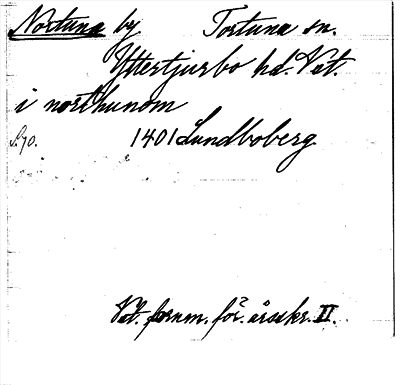 Nortuna by Tortuna sn.
Yttertjurbo hd. Vstm.
i northunom
S. 70. 1401 Lundboberg.
Vst. fornm. för. årsskr. II.